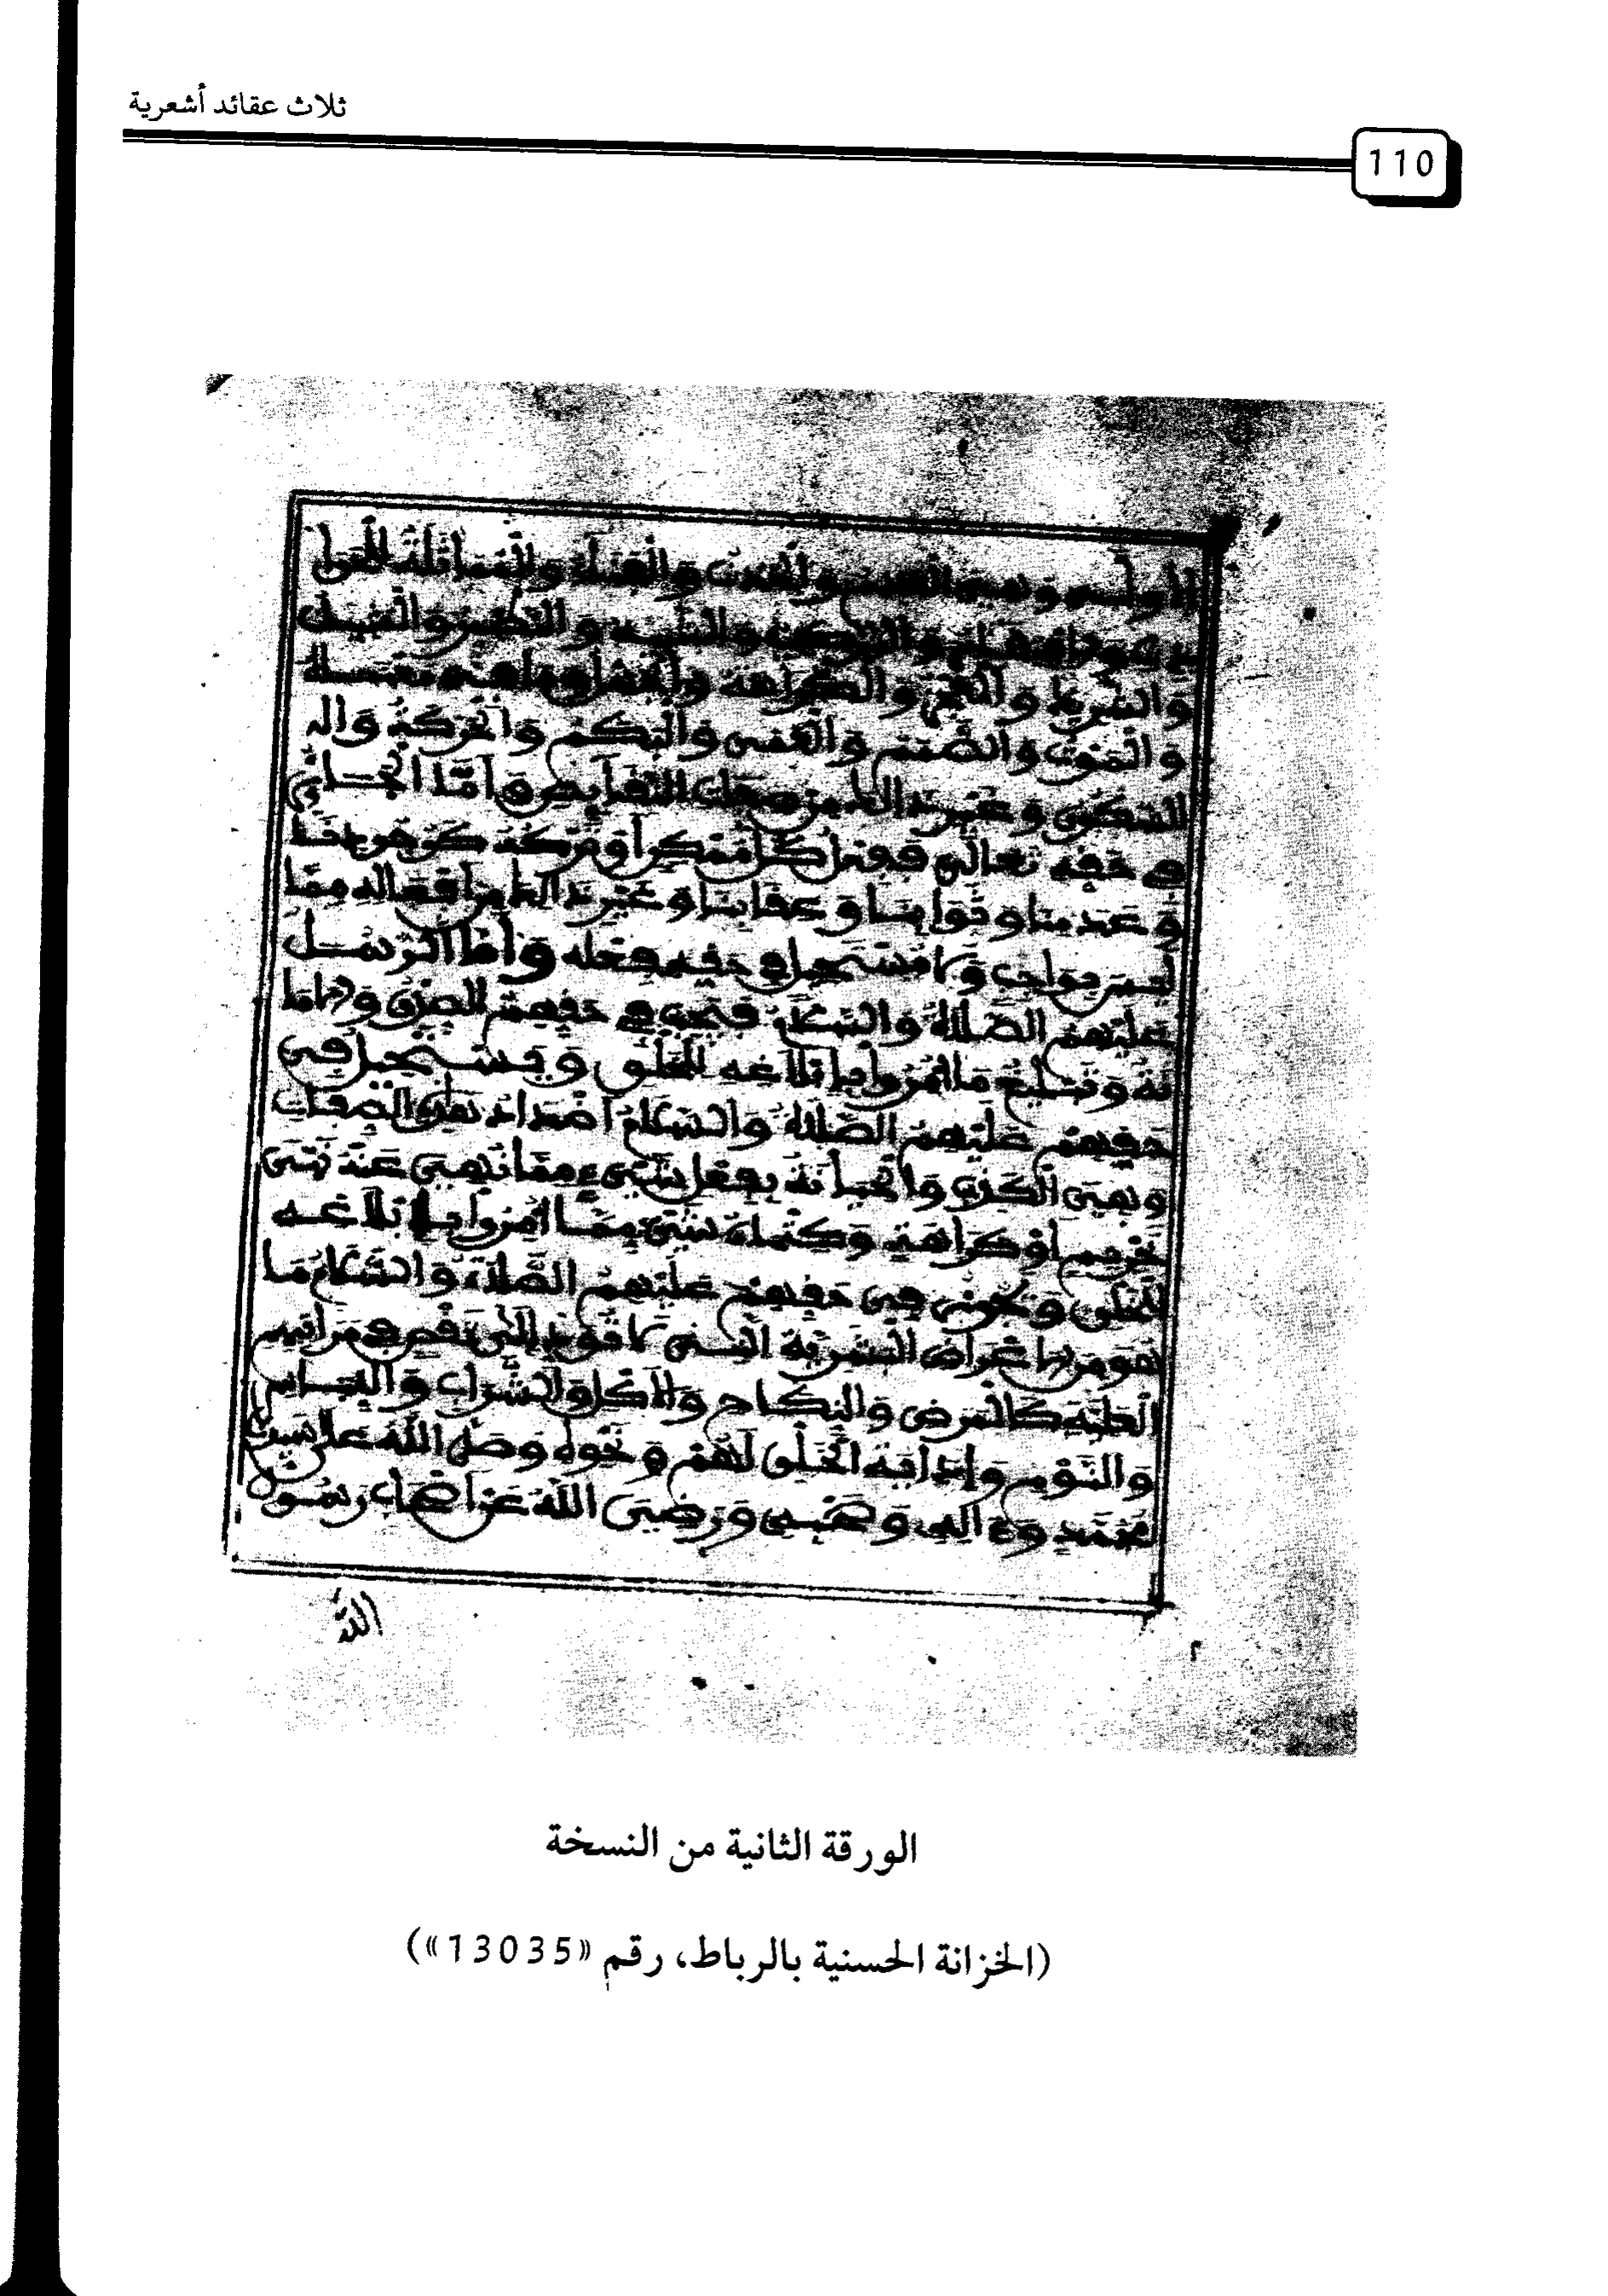 ثلاث عقائد أشعرية
110
الأولى وهي العدم والحدوث والفناء والمماثلة للحوا
والتركيب والشبيه والنظير والمثيل
والشريك والعجز والكراهة والجهل وما في معناه
والموت والصمم والعمى والبكم والحركة والـ
السكون وغير ذالك من صفات النقائص وأما الجائز
في حقه تعالى ففعل كل ممكن أو تركه كوجودنا
وعدمنا وثوابنا وعقابنا وغير ذالك من أفعاله مما
ليس بواجب ولا مستحيل في حقه فعله وأما الرسل
عليهم الصلاة والسلام فيجب في حقهم الصدق والاما
نة وتبليغ ما امروا بابلاغه للخلق ويستحيل في
حقهم عليهم الصلاة والسلام اضداد هذه الصفات
وهي الكذب والخيانة بفعل شيء مما نهي عنه نهي
تحريم أو كراهة وكتمان شيء مما امروا بابلاغه
للخلق ويجوز في حقهم عليهم الصلاة والسلام ما
هو من الاعراض البشرية التي لا تؤدي الى نقص في مراتبهم
العلية كالمرض والنكاح والاكل والشراب واللباس
والنوم وإذاية الخلق لهم ونحوه وصلى الله على سيدنا
محمد وءاله وصحبه ورضي الله عن اصحاب رسول
الله
الورقة الثانية من النسخة
(الخزانة الحسنية بالرباط، رقم «13035»)